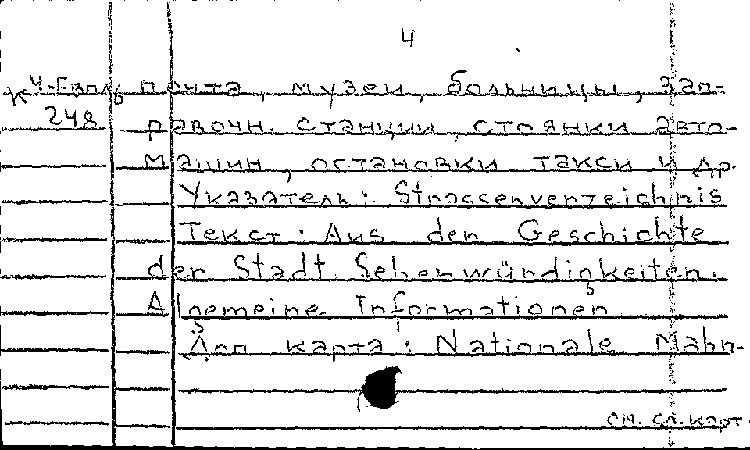 4
почта, музеи, больницы, зап-
248 равочн. станции, стоянки авто-
машин, остановки такси и др.
Указатель: Strassenverzeichnis
Текст: Aus den Geschichte
der Stadt. Sehenwündigkeiten.
Algemeine Informationen
Доп карта: Nationale Mahn-
см. сл. карт.